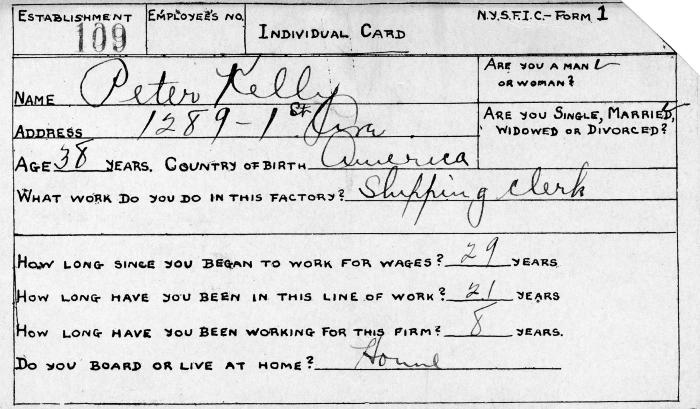 ESTABLISHMENT EMPLOYEE'S NO. N.Y.S.F.I.C. - FORM 1
109 INDIVIDUAL CARD
NAME Peter Kelly ARE YOU A MAN OR WOMAN?
ADDRESS 1289 - 1st Ave. ARE YOU SINGLE, MARRIED, WIDOWED OR DIVORCED?
AGE 38 YEARS. COUNTRY OF BIRTH America
WHAT WORK DO YOU DO IN THIS FACTORY? Shipping clerk
HOW LONG SINCE YOU BEGAN TO WORK FOR WAGES? 29 YEARS
HOW LONG HAVE YOU BEEN IN THIS LINE OF WORK? 21 YEARS
HOW LONG HAVE YOU BEEN WORKING FOR THIS FIRM? 8 YEARS.
DO YOU BOARD OR LIVE AT HOME? Home